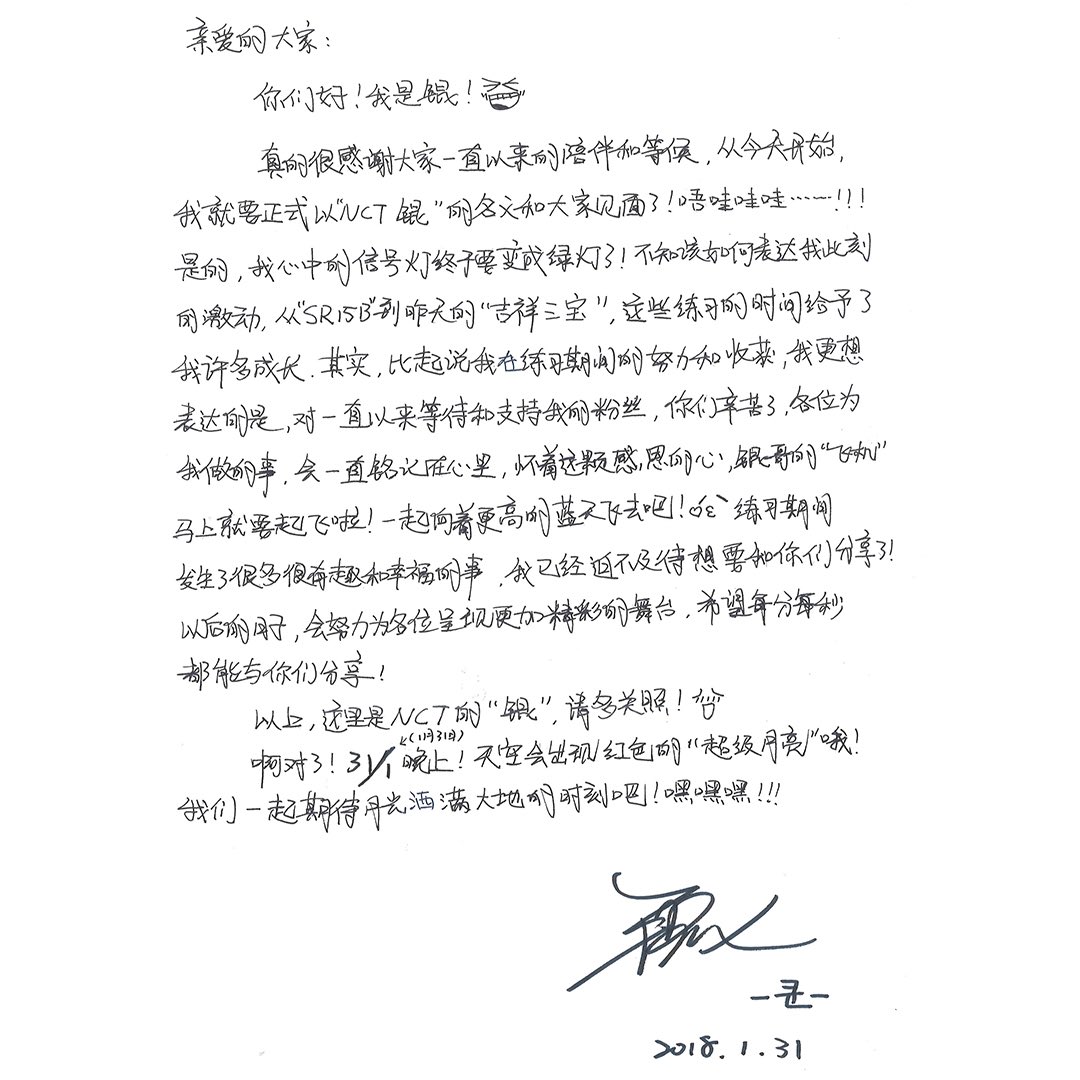 亲爱的大家：
你们好！我是锟！
真的很感谢大家一直以来的陪伴和等候，从今天开始，
我就要正式以“NCT 锟”的名义和大家见面了！唔哇哇哇……!!!
是的，我心中的信号灯终于要变成绿灯了！不知该如何表达我此刻
的激动，从“SR15B”到昨天的“吉祥三宝”，这些练习的时间给予了
我许多成长．其实，比起说我在练习期间的努力和收获，我更想
表达的是，对一直以来等待和支持我的粉丝，你们辛苦了，各位为
我做的事，会一直铭记在心里，怀着这颗感恩的心，锟哥的“飞机”
马上就要起飞啦！一起向着更高的蓝天飞去吧！练习期间
发生了很多很有趣和幸福的事，我已经迫不及待想要和你们分享了！
以后的日子，会努力为各位呈现更加精彩的舞台，希望每分每秒
都能与你们分享！
以上，这里是NCT的“锟”，请多关照！
(1月31日)
啊对了！31/1 晚上！天空会出现红色的“超级月亮”哦！
我们一起期待月光洒满大地的时刻吧！嘿嘿嘿!!!
-쿤-
2018.1.31